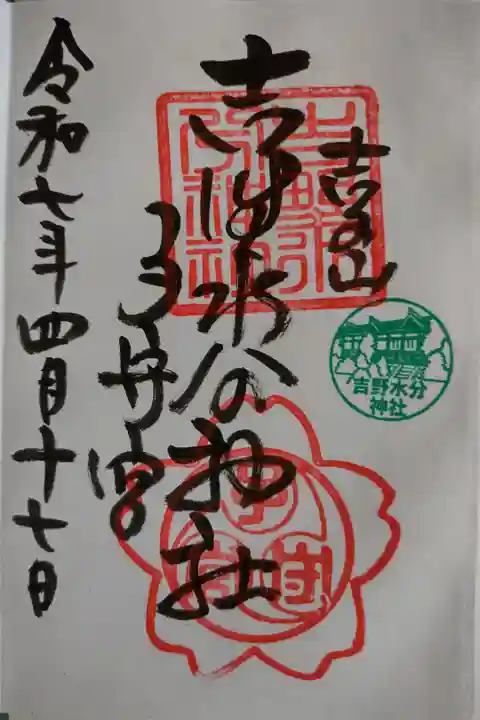 吉野山
吉野水分神社
子守宮
令和七年四月十七日
吉野水分
神社
吉野水
分神社
子守宮